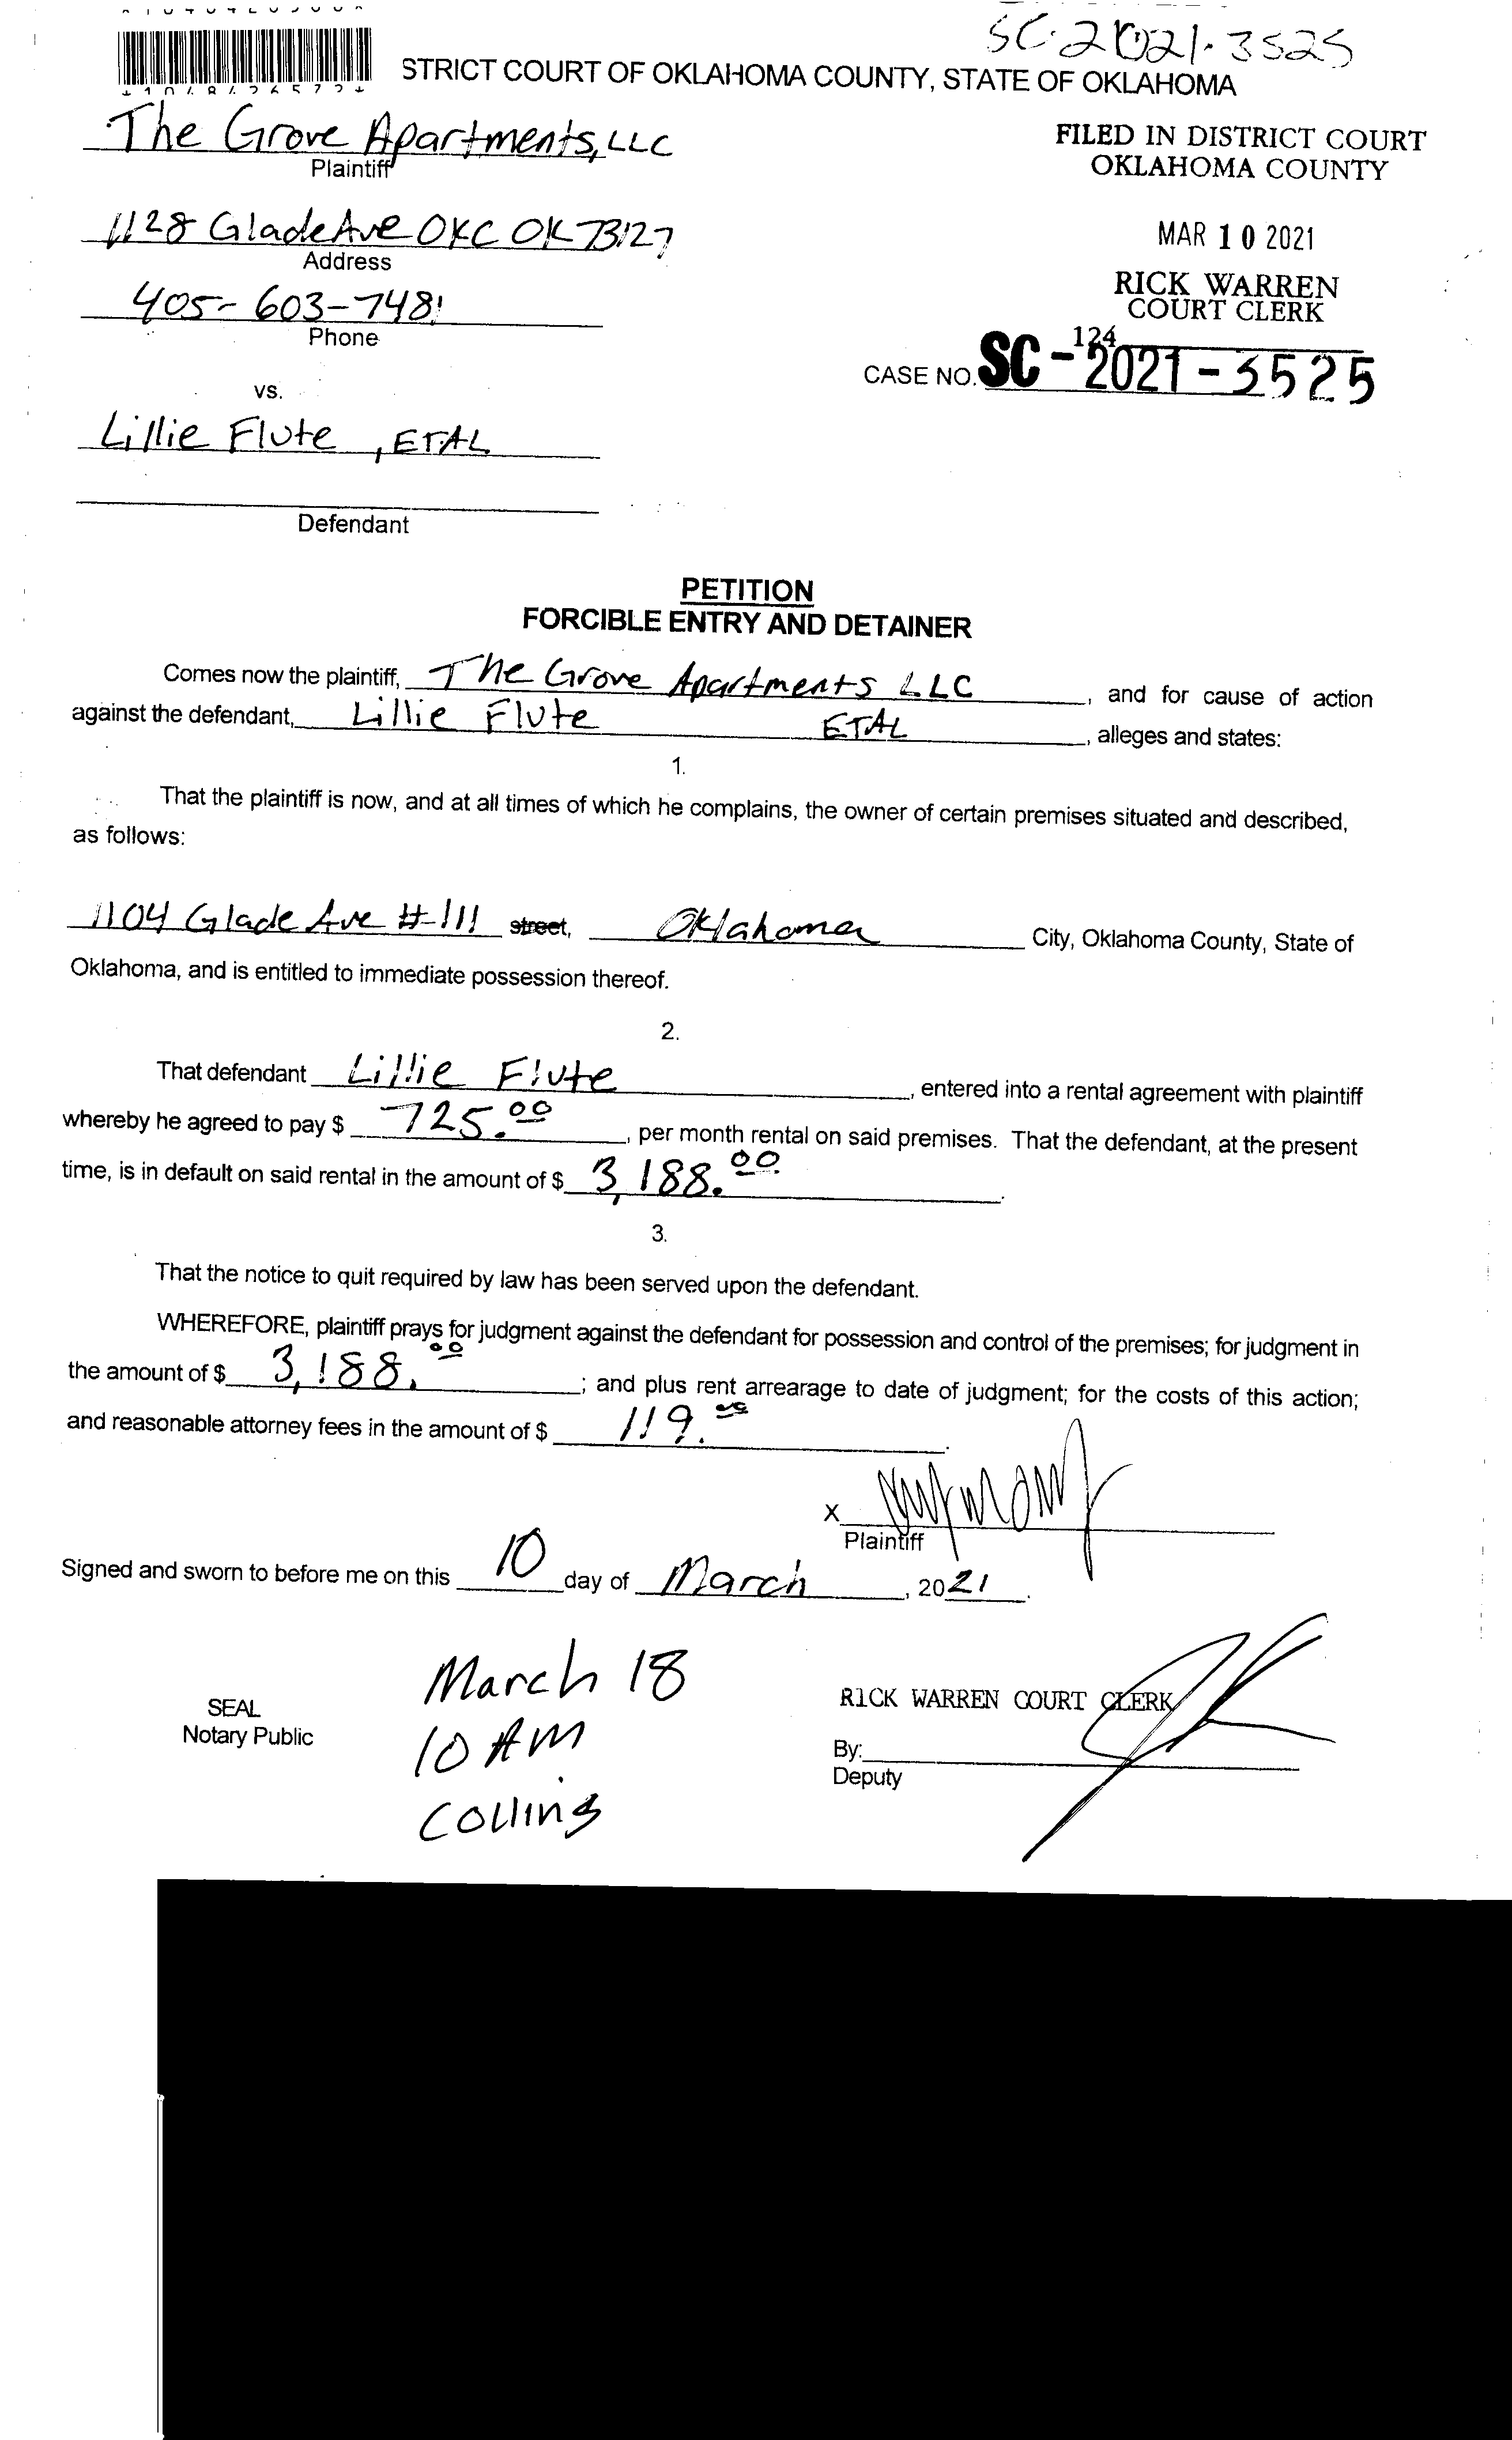 SC-2021-3525
*1048426572*
STRICT COURT OF OKLAHOMA COUNTY, STATE OF OKLAHOMA
The Grove Apartments, LLC
Plaintiff
FILED IN DISTRICT COURT
OKLAHOMA COUNTY
1128 Glade Ave OKC OK 73127
Address
MAR 10 2021
405-603-7481
Phone
RICK WARREN
COURT CLERK
124
CASE NO. SC-2021-3525
vs.
Lillie Flute, ETAL
Defendant
PETITION
FORCIBLE ENTRY AND DETAINER
Comes now the plaintiff, The Grove Apartments LLC, and for cause of action
against the defendant, Lillie Flute ETAL, alleges and states:
1.
That the plaintiff is now, and at all times of which he complains, the owner of certain premises situated and described,
as follows:
1104 Glade Ave #111 street, Oklahoma City, Oklahoma County, State of
Oklahoma, and is entitled to immediate possession thereof.
2.
That defendant Lillie Flute, entered into a rental agreement with plaintiff
whereby he agreed to pay $ 725.00, per month rental on said premises. That the defendant, at the present
time, is in default on said rental in the amount of $ 3,188.00.
3.
That the notice to quit required by law has been served upon the defendant.
WHEREFORE, plaintiff prays for judgment against the defendant for possession and control of the premises; for judgment in
the amount of $ 3,188.00; and plus rent arrearage to date of judgment; for the costs of this action;
and reasonable attorney fees in the amount of $ 119.00.
X
Plaintiff
Signed and sworn to before me on this 10 day of March, 2021.
March 18
10 AM
Collins
SEAL
Notary Public
RICK WARREN COURT CLERK
By:
Deputy